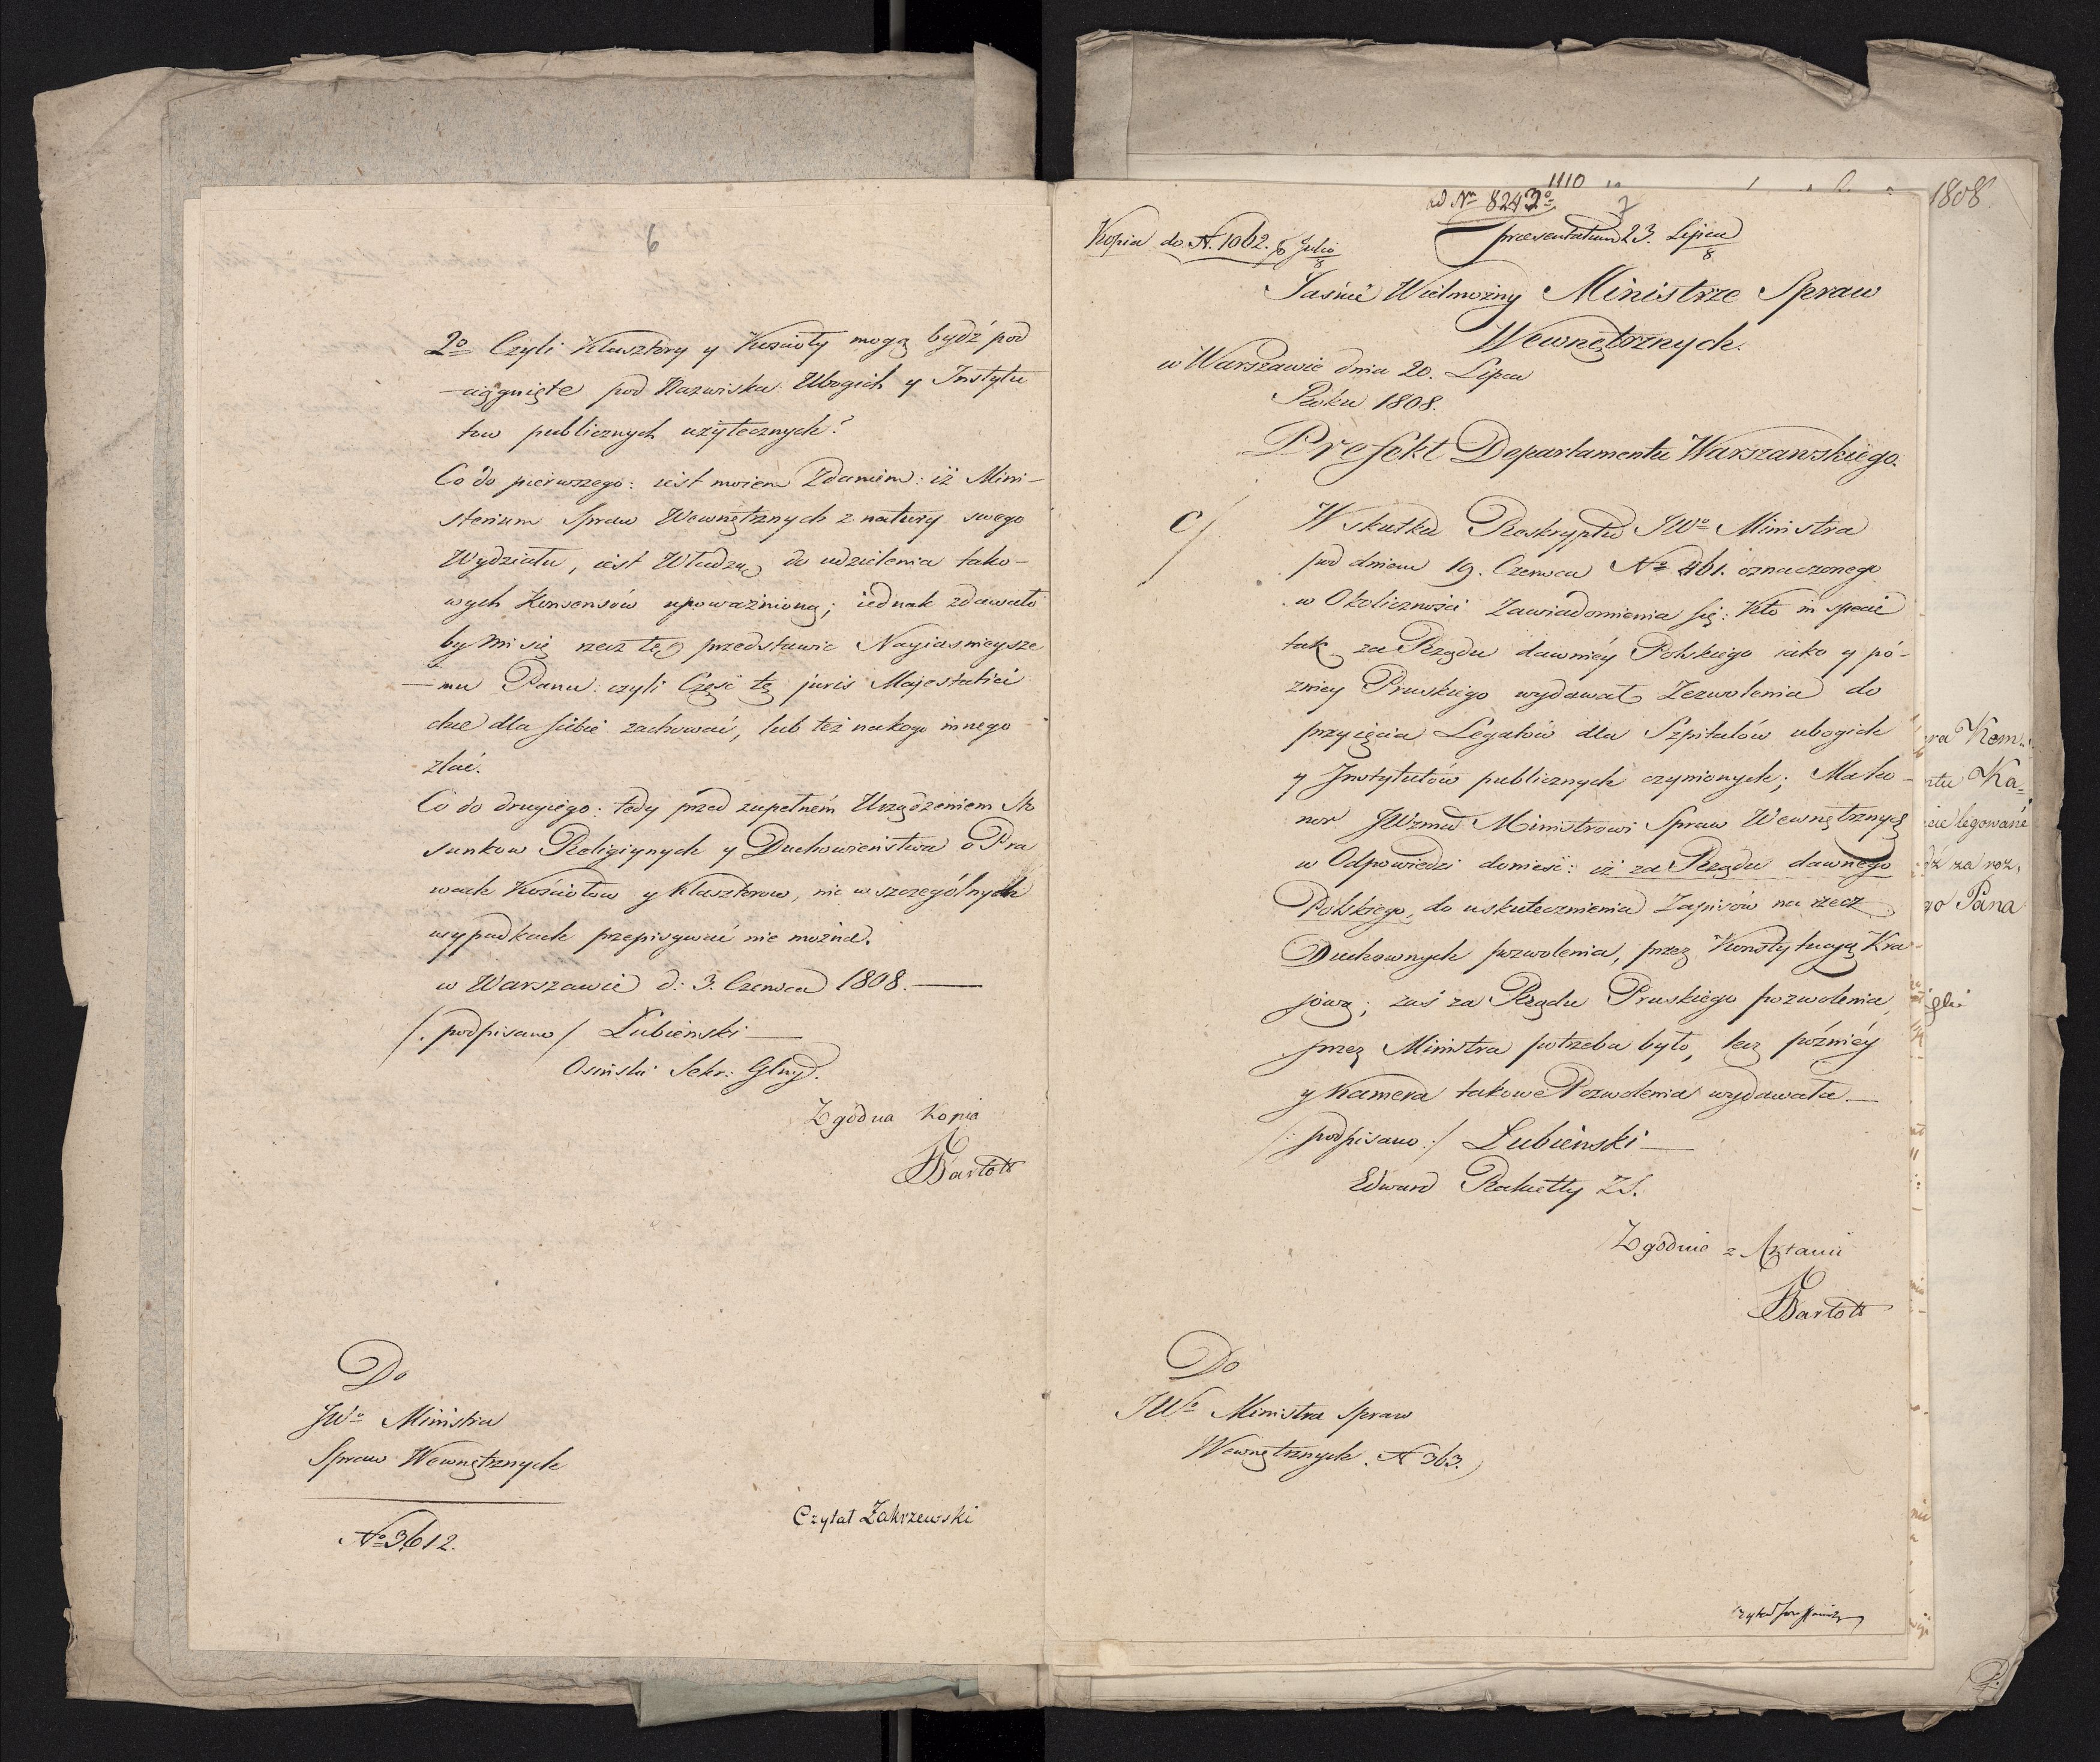 6
2o Czyli Klasztory y Kościoły mogą bydź pod
-ciągnięte pod Nazwiska Ubogich y Instytu
tow publicznych uzytecznych?
Co do pierwszego: iest moiem Zdaniem: iż Mini-
sterium Spraw Wewnętrznych z natury swego
Wydziału, iest Władzą do udzielenia tako-
wych Konsensów upoważnioną; iednak zdawało
by mi się rzecz tę przedstawic Nayiasnieysze
-mu Panu: czyli Część tę juris Majestatici
chce dla siebie zachować, lub też na kogo innego
zlać.
Co do drugiego: tedy przed zupełném Urządzeniem Sto
sunkow Religiynych y Duchowieństwa o Pra
wach Kościołow y Klasztorow, nic w szczególnych
wypadkach przepisywać nie można.
w Warszawie d: 3. Czerwca 1808.
/. podpisano / Łubienski
Osiński Sekr: Glny.
Zgodna Kopia
Bartold
Do
JWo Ministra
Spraw Wewnętrznych
No 3612.
Czytał Zakrzewski
1110
ad Nm 8243o
7
praesentatum 23. Lipca
8
Kopia do N. 1062. 6 Julii
8
Jaśnie Wielmożny Ministrze Spraw
Wewnętrznych.
w Warszawie dnia 20. Lipca
Roku 1808.
Prefekt Departamentu Warszawskiego.
C/
W skutku Reskryptu JWo Ministra
pod dniem 19. Czerwca No 461. oznaczonego
w Okoliczności Zawiadomienia się: Kto in specie
tak za Rządu dawniéy Polskiego iako y pó-
zniey Pruskiego wydawał Zezwolenia do
przyięcia Legatów dla Szpitalów ubogich
y Instytutów publicznych czynionych; Mam ho-
nor JWzmu Ministrowi Spraw Wewnętrznych
w Odpowiedzi donieść: iż za Rządu dawnego
Polskiego, do uskutecznienia Zapisów na rzecz
Duchownych pozwolenia, przez Konstytucyą Kra-
jową; zaś za Rządu Pruskiego pozwolenia
przez Ministra potrzeba było, lecz późniéy
y Kamera takowe Pozwolenia wydawała
/: podpisano :/ Łubieński
Edward Rakietty ZS.
Zgodnie z Aktami
Bartold
Do
JWo Ministra Spraw
Wewnętrznych. N 363.
1808.
ra Kom
ntu Ka
cie legowane
dź za roz,
go Pana